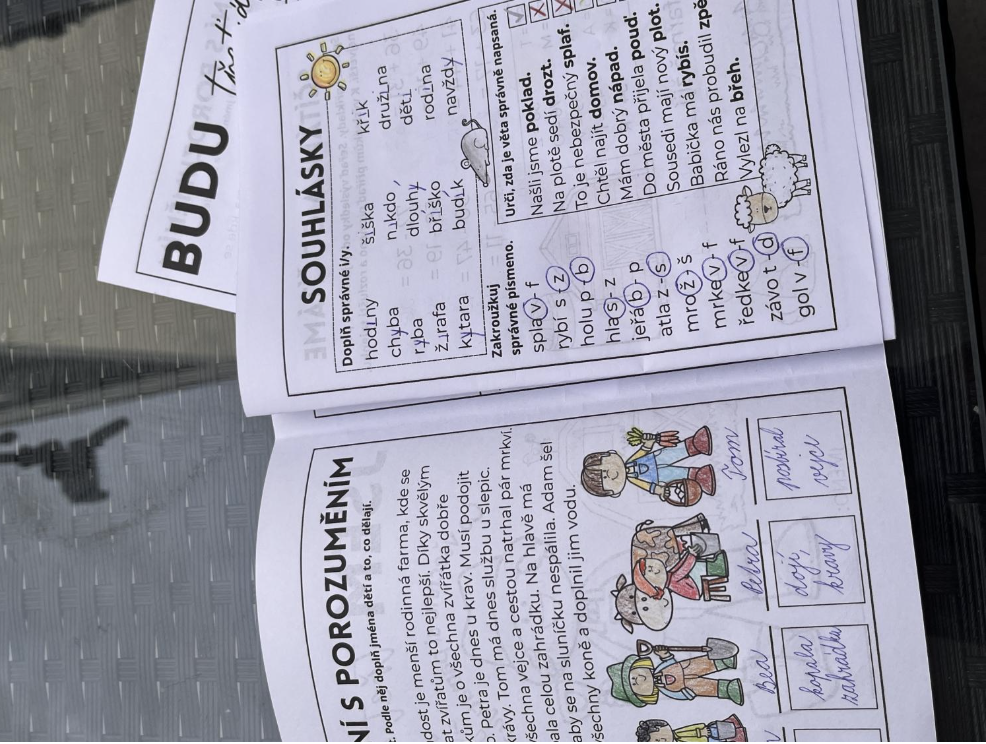 BUDU
SOUHLÁSKY
Doplň správné i/y.
hodiny šiška křik
chyba nikdo družina
ryba dlouhý děti
žirafa bříško rodina
kytara budík navždy
Zakroužkuj
správné písmeno.
spla v f
rybí s z
holu p b
hla s - z
jeřá b - p
atla z - s
mro ž - š
mrke v - f
ředke v - f
závo t d
gol v - f
Urči, zda je věta správně napsaná.
Našli jsme poklad.
Na plotě sedí drozt.
To je nebezpečný splaf.
Chtěl najít domov.
Mám dobrý nápad.
Do města přijela pouď.
Sousedi mají nový plot.
Babička má rybís.
Ráno nás probudil zpě
Vylezl na břeh.
NÍ S POROZUMĚNÍM
t. Podle něj doplň jména dětí a to, co dělají.
dost je menší rodinná farma, kde se
at zvířatům to nejlepší. Díky skvělým
kům je o všechna zvířátka dobře
o. Petra je dnes u krav. Musí podojit
krávy. Tom má dnes službu u slepic.
všechna vejce a cestou natrhal pár mrkví.
ala celou zahrádku. Na hlavě má
aby se na sluníčku nespálila. Adam šel
všechny koně a doplnil jim vodu.
Bea Petra Tom
kopala
zahrádku
dojí
krávy
posbíral
vejce